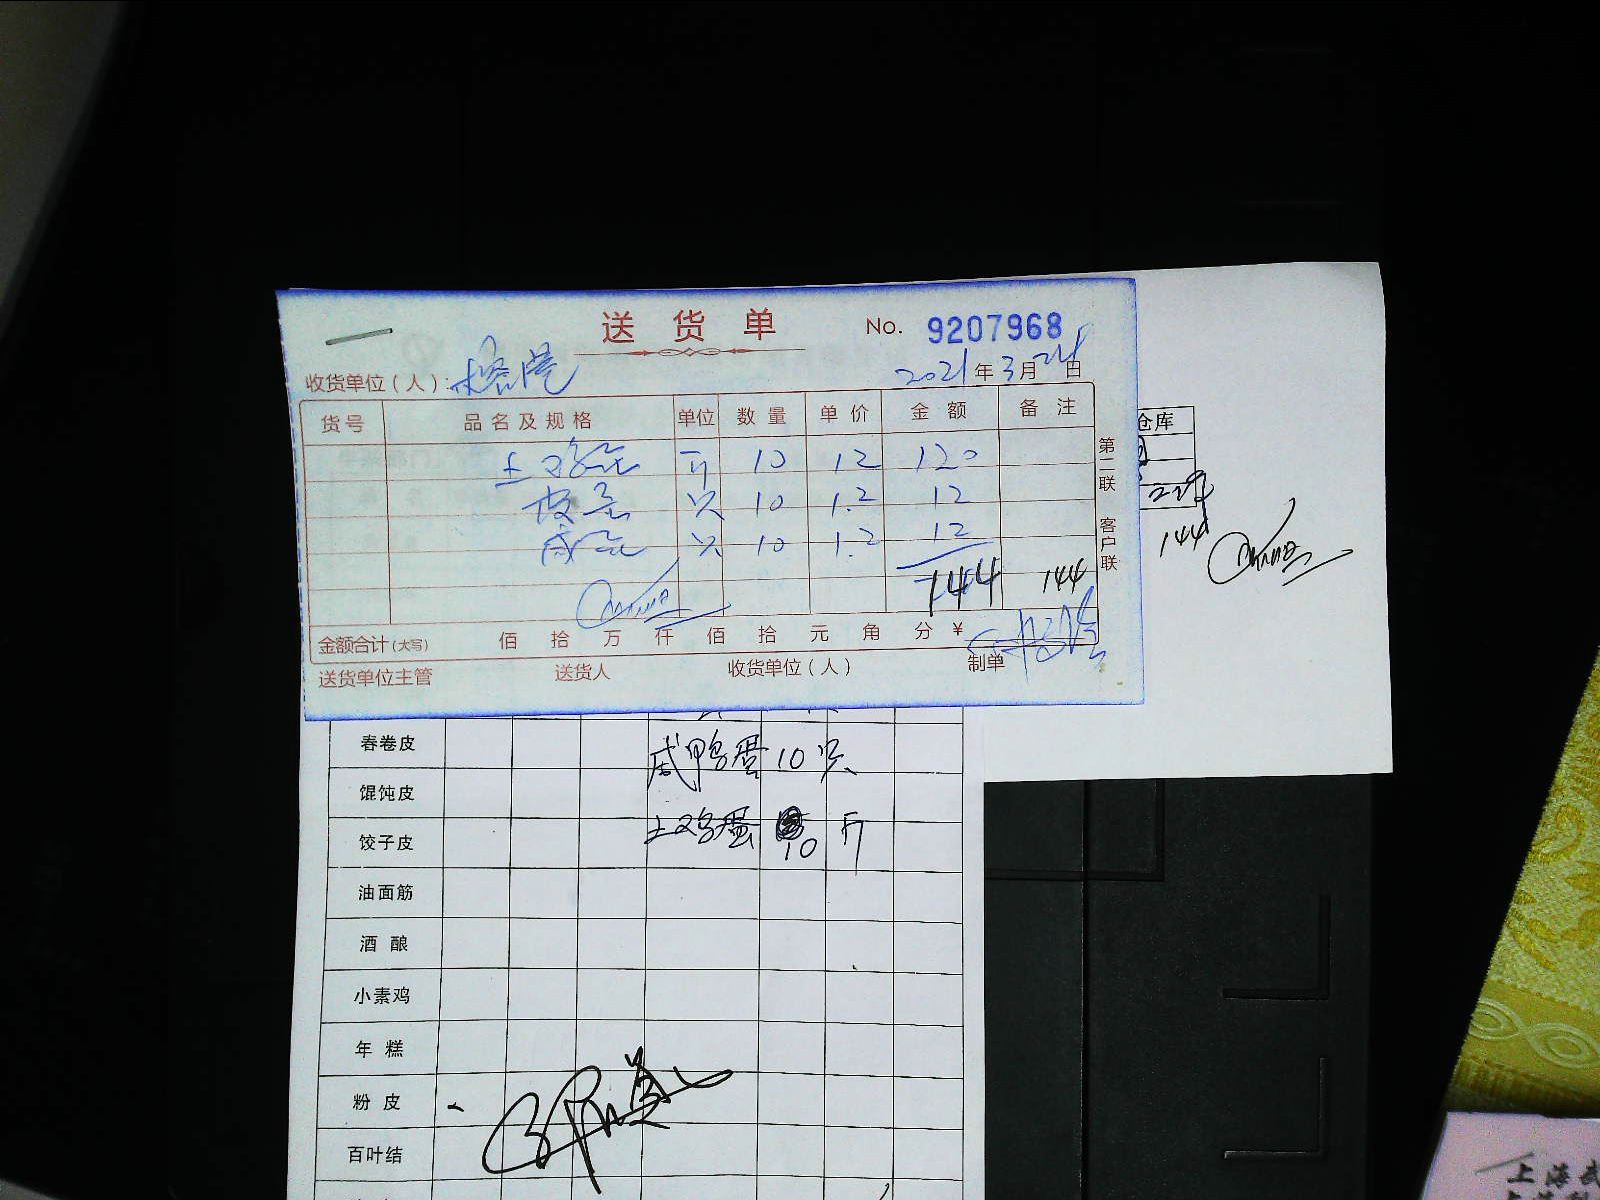 送货单 No. 9207968
收货单位（人）: 榕港 2021年3月24日
货号 品名及规格 单位 数量 单价 金额 备注
土鸡蛋 斤 10 12 120
皮蛋 只 10 1.2 12
咸蛋 只 10 1.2 12
144 144
金额合计(大写) 佰 拾 万 仟 佰 拾 元 角 分 ¥
送货单位主管 送货人 收货单位（人） 制单
第二联 客户联
仓库
144
春卷皮 咸鸭蛋 10只
馄饨皮
饺子皮 土鸡蛋 10 斤
油面筋
酒酿
小素鸡
年糕
粉皮
百叶结
上海